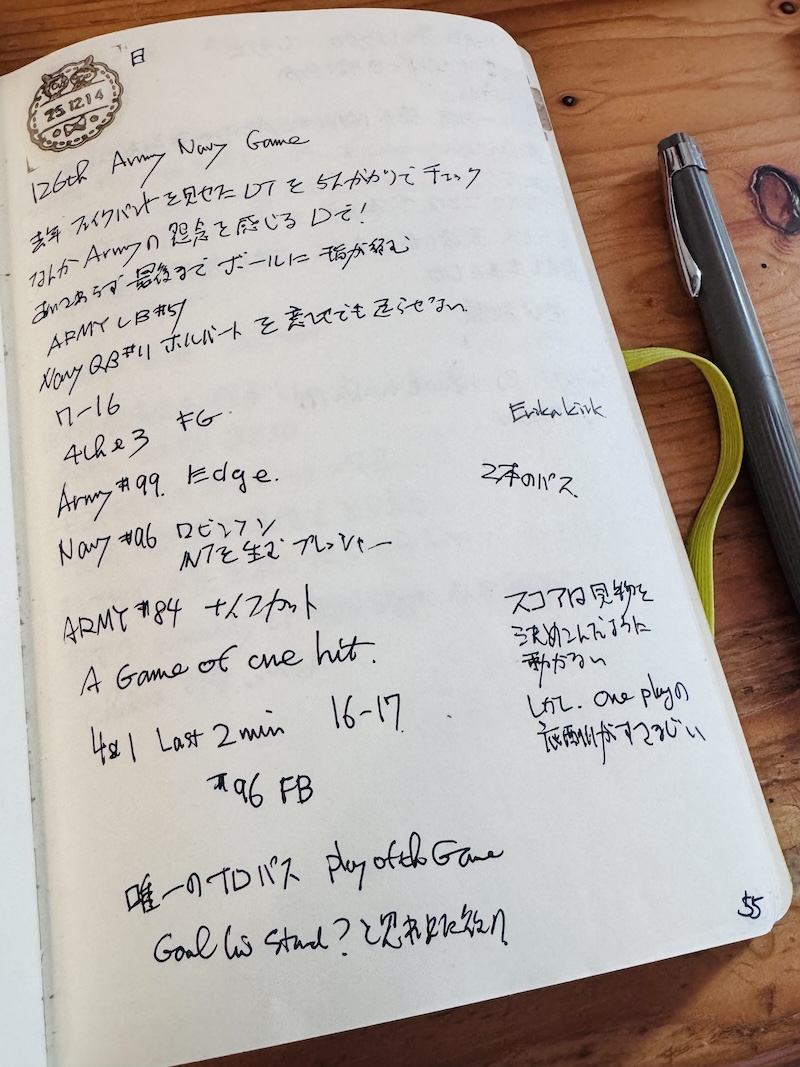 日
25.12.14
126th Army Navy Game
去年 フェイクパントを見せた DTを5人がかりでチェック
なんかArmyの怨念を感じるDで!
最後まで ボールに 指が絡む
ARMY LB#51
Navy QB#11 ホルバート を 意地でも走らせない
17-16
4th & 3 FG.
Erika kirk
Army #99. Edge.
2本のパス
Navy #96 ロビンソン
INTを生む プレッシャー
ARMY #84 ナイスカット
A Game of one hit.
スコアは見物を
決めこんだように
動かない
しかし. one playの
応酬がすさまじい
4&1 Last 2 min 16-17
#96 FB
唯一のTDパス Play of the Game
Goal line Stand? と思われた
55